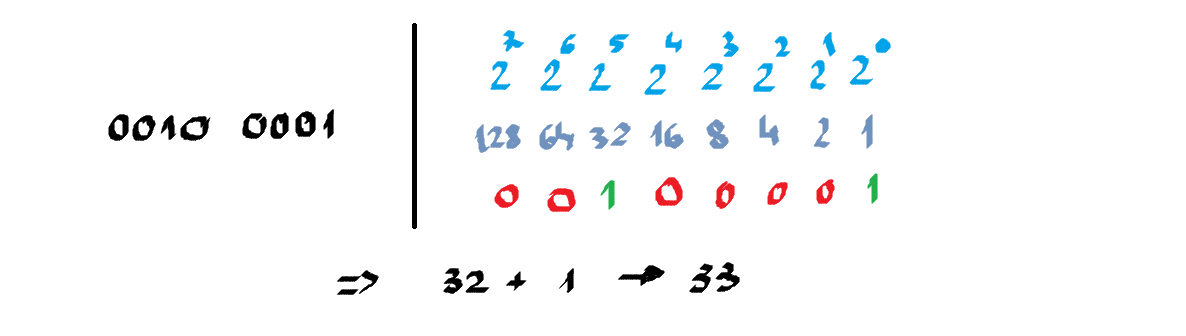 0010 0001
2⁷ 2⁶ 2⁵ 2⁴ 2³ 2² 2¹ 2⁰
128 64 32 16 8 4 2 1
0 0 1 0 0 0 0 1
=> 32 + 1 → 33